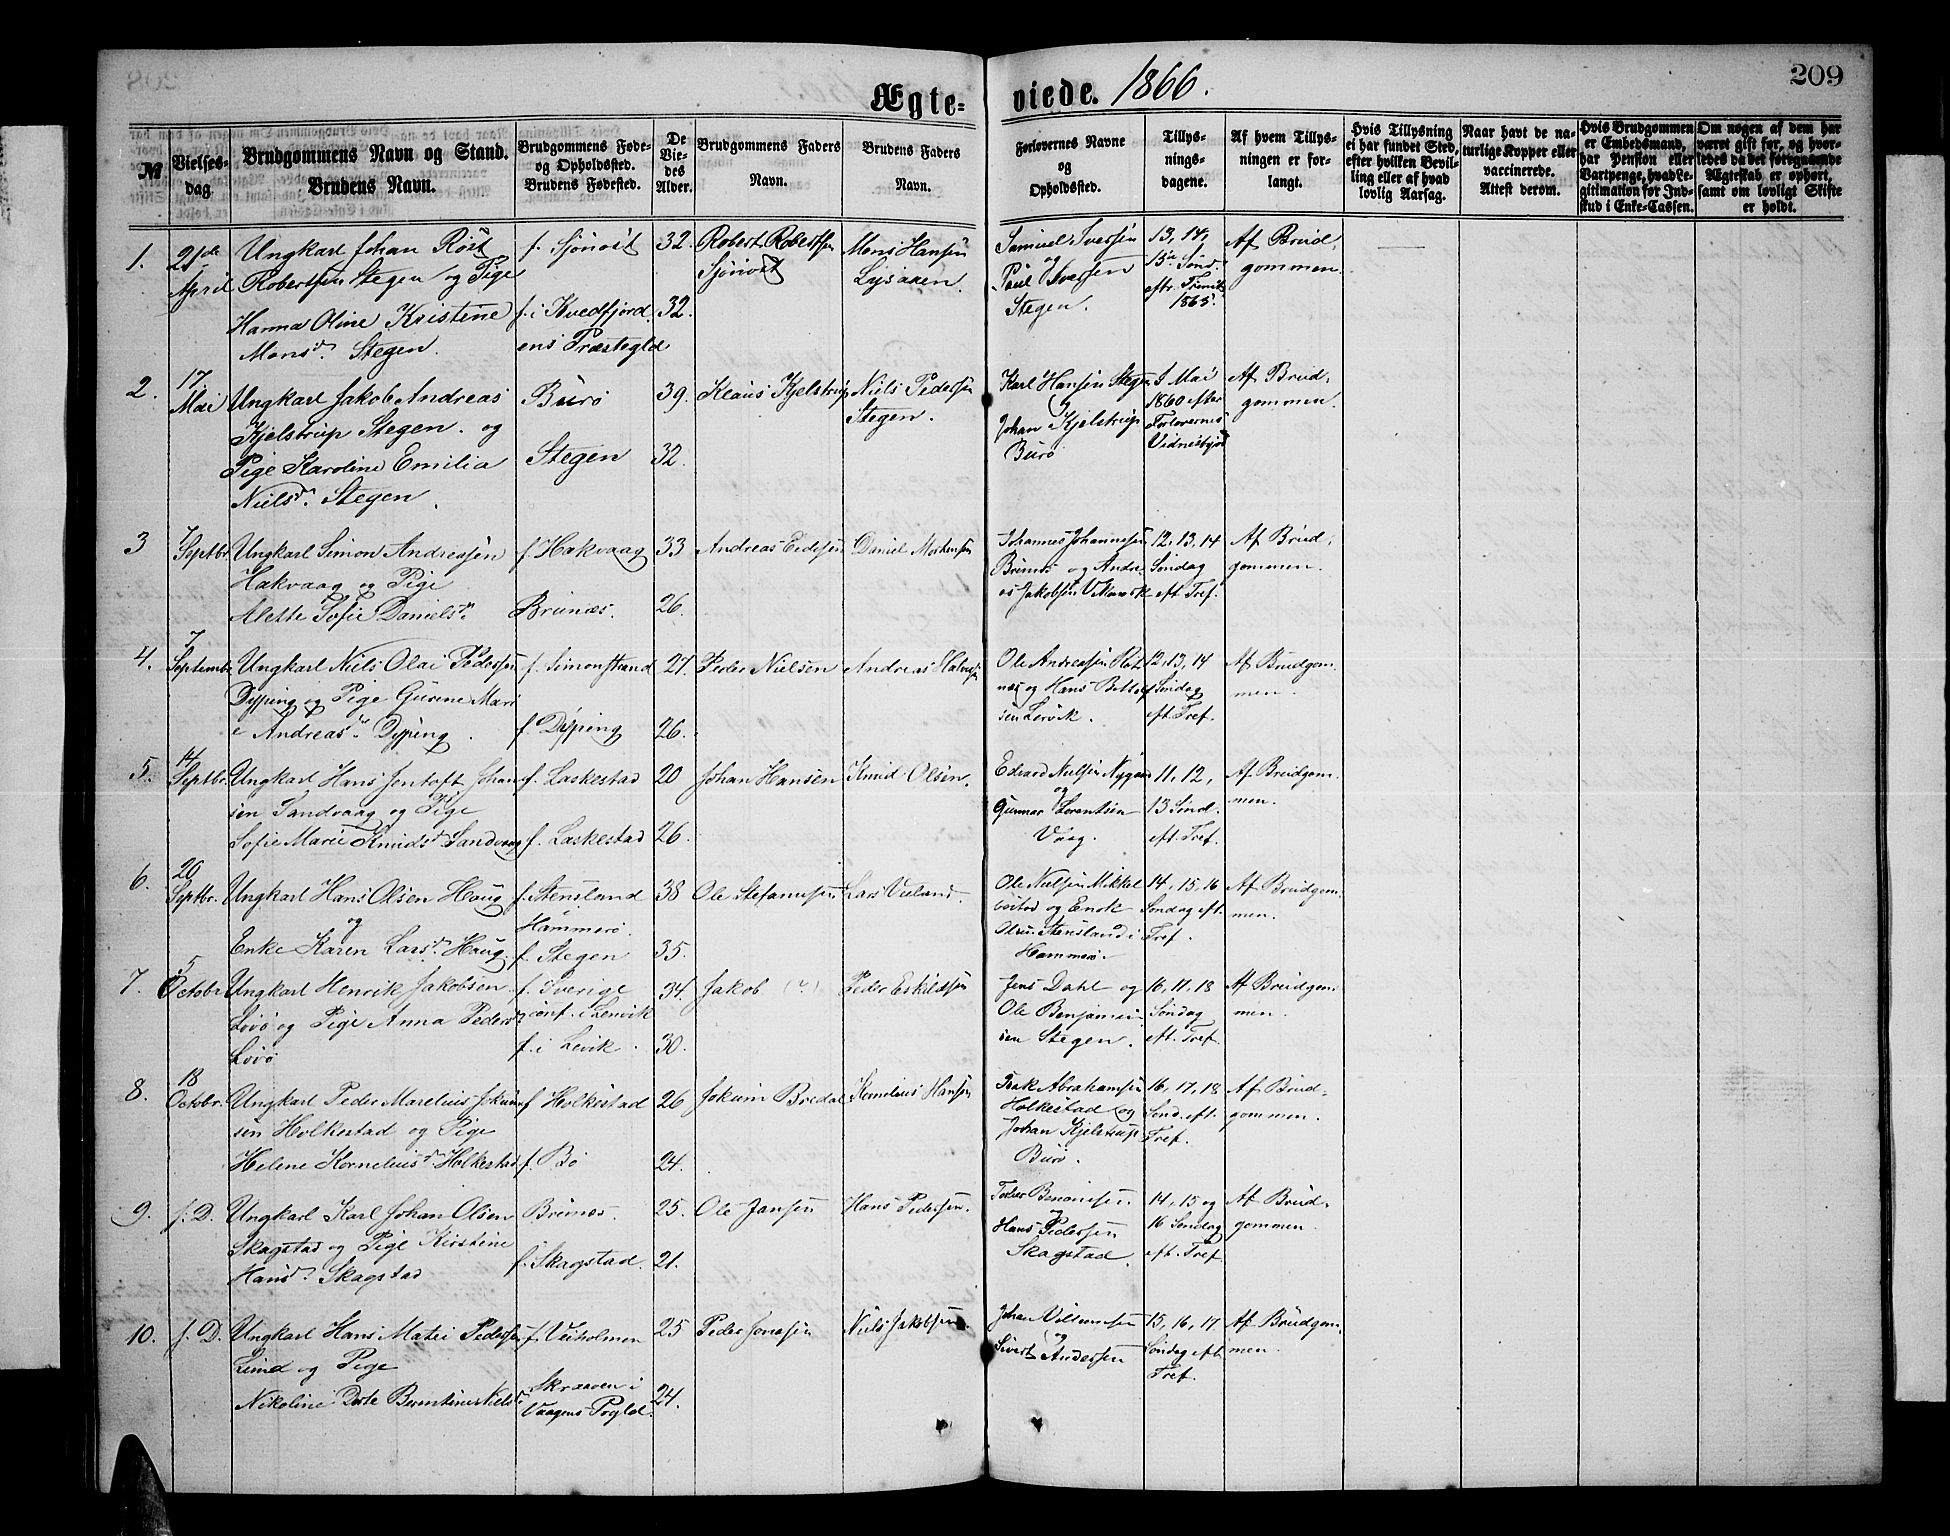 Ægte-
viede. 1866.
209
№
Vielses-
dag.
Brudgommens Navn og Stand.
Brudens Navn.
Brudgommens Føde-
og Opholdssted.
Brudens Fødested.
De
Vie-
des
Alder.
Brudgommens Faders
Navn.
Brudens Faders
Navn.
Forlovernes Navne
og
Opholdssted.
Tillys-
nings-
dagene.
Af hvem Tillys-
ningen er for-
langt.
Hvis Tillysning
ei har fundet Sted,
efter hvilken Bevil-
ling eller af hvad
lovlig Aarsag.
Naar havt de na-
turlige Kopper eller
vaccinerede.
Attest derom.
Hvis Brudgommen
er Embedsmand,
har Pension eller
Vartpenge, hvad Le-
gitimation for Ind-
skud i Enke-Cassen.
Om nogen af dem har
været gift før, og hvor-
ledes da det foregaaende
Ægteskab er ophørt,
samt om lovligt Skifte
er holdt.
1.
21de
April
Ungkarl Johan Røst
Robertsen Stegen og Pige
Hanna Oline Kristine
Monsd. Stegen.
f. Sjønøst
f. i Kvedfjord
ens Præstegld
32
32.
Robert Robertsen
Sjønøst
Mons Hansen
Lysaaen.
Samuel Iversen
og
Paul Iversen
Stegen.
13, 14,
15de Sønd.
eftr. Trinit.
1865.
Af Brud-
gommen.
2.
17
Mai
Ungkarl Jakob Andreas
Kjelstrup Stegen. og
Pige Karoline Emilia
Nielsd. Stegen.
Burø
Stegen
39.
32.
Klaus Kjelstrup
Niels Pedersen
Stegen.
Karl Hansen Stegen
og
Johan Kjelstrup
Burø
Mai
1860 efter
Forlovernes
Vidnesbyrd
Af Brud-
gommen.
3
7
Septbr.
Ungkarl Simon Andreasen
Hakvaag og Pige
Alette Sofie Danielsd.
f. Hakvaag
Brunæs.
33
26.
Andreas Edisen
Daniel Mortensen
Johannes Johannesen
Brunæs og Andre-
as Jakobsen
12, 13, 14
Søndag
eft Tref.
Af Brud-
gommen.
4.
7
Septembr
Ungkarl Niels Olai Pedersen
Dyping og Pige Gurine Mari
e Andreasd. Dyping.
f. Simonstrand
f. Dyping
27.
26.
Peder Nielsen
Andreas Halvorsen
Ole Andreasen
næs og Hans
sen Lervik.
12, 13, 14
Søndag
eft. Tref.
Af Brudgom-
men.
5.
14
Septbr.
Ungkarl Hans Jentoft Johan
sen Sandvaag og Pige
Sofie Marie Knudsd. Sandvaag
f. Laskestad
f. Laskestad
20
26.
Johan Hansen
Knud Olsen.
Edvard Nielsen Nygaard
og
Gunnar Lorentsen
Vaag.
11, 12,
13 Sønd.
eft. Tref.
Af Brudgom-
men.
6.
20
Septbr.
Ungkarl Hans Olsen Haug
og
Enke Karen Larsd. Haug.
f. Stensland
Hammerø.
f. Stegen
38
35.
Ole Stefanusen
Lars Veland.
Ole Nielsen Mikkel
bostad og Enok
Olsen Stensland i
Hammerø.
14, 15, 16
Søndag eft.
Tref.
Af Brudgom-
men.
7.
5
Octobr.
Ungkarl Henrik Jakobsen
Løvø og Pige Anna Pedersd.
Løvø
f. Sverige
conf. i Lenvik
f. i Levik.
34.
30.
Jakob (?)
Peder Eskildsen
Jens Dahl og
Ole Benjamin
sen Stegen.
16, 17, 18
Søndag
eft. Tref.
Af Brudgom-
men.
8.
18
Octobr.
Ungkarl Peder Marelius Jokum
sen Holkestad og Pige
Helene Korneliusd. Holkestad
f. Holkestad
f. Bø
26
24.
Jokum Bredal
Kornelius Hansen
Isak Abrahamsen
Holkestad og
Johan Kjelstrup
Burø.
16, 17, 18
Sønd. eft.
Tref.
Af Brud-
gommen.
9.
s. D.
Ungkarl Karl Johan Olsen
Skagstad og Pige Kirstine
Hansd. Skagstad
Brunæs.
f. Skagstad.
25.
21.
Ole Jansen
Hans Pedersen.
Benonisen
og
Hans Pedersen
Skagstad.
14, 15 og
16 Søndag
eft. Tref.
Af Brud-
gommen.
10.
s. D.
Ungkarl Hans Matei Pedersen
Lund og Pige
Nikoline Dorte Berentine Nielsd.
f. Veiholmen
Skraaven i
Vaagens Pgld.
25
24.
Peder Jonasen
Niels Jakobsen.
Johan Vilumsen
og
Sivert Andersen
15, 16, 17
Søndag eft
Tref.
Af Brudgom-
men.